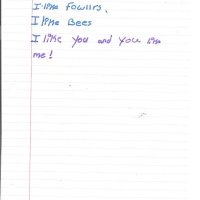 I like fowllrs.
I like Bees
I like you and you like
me!